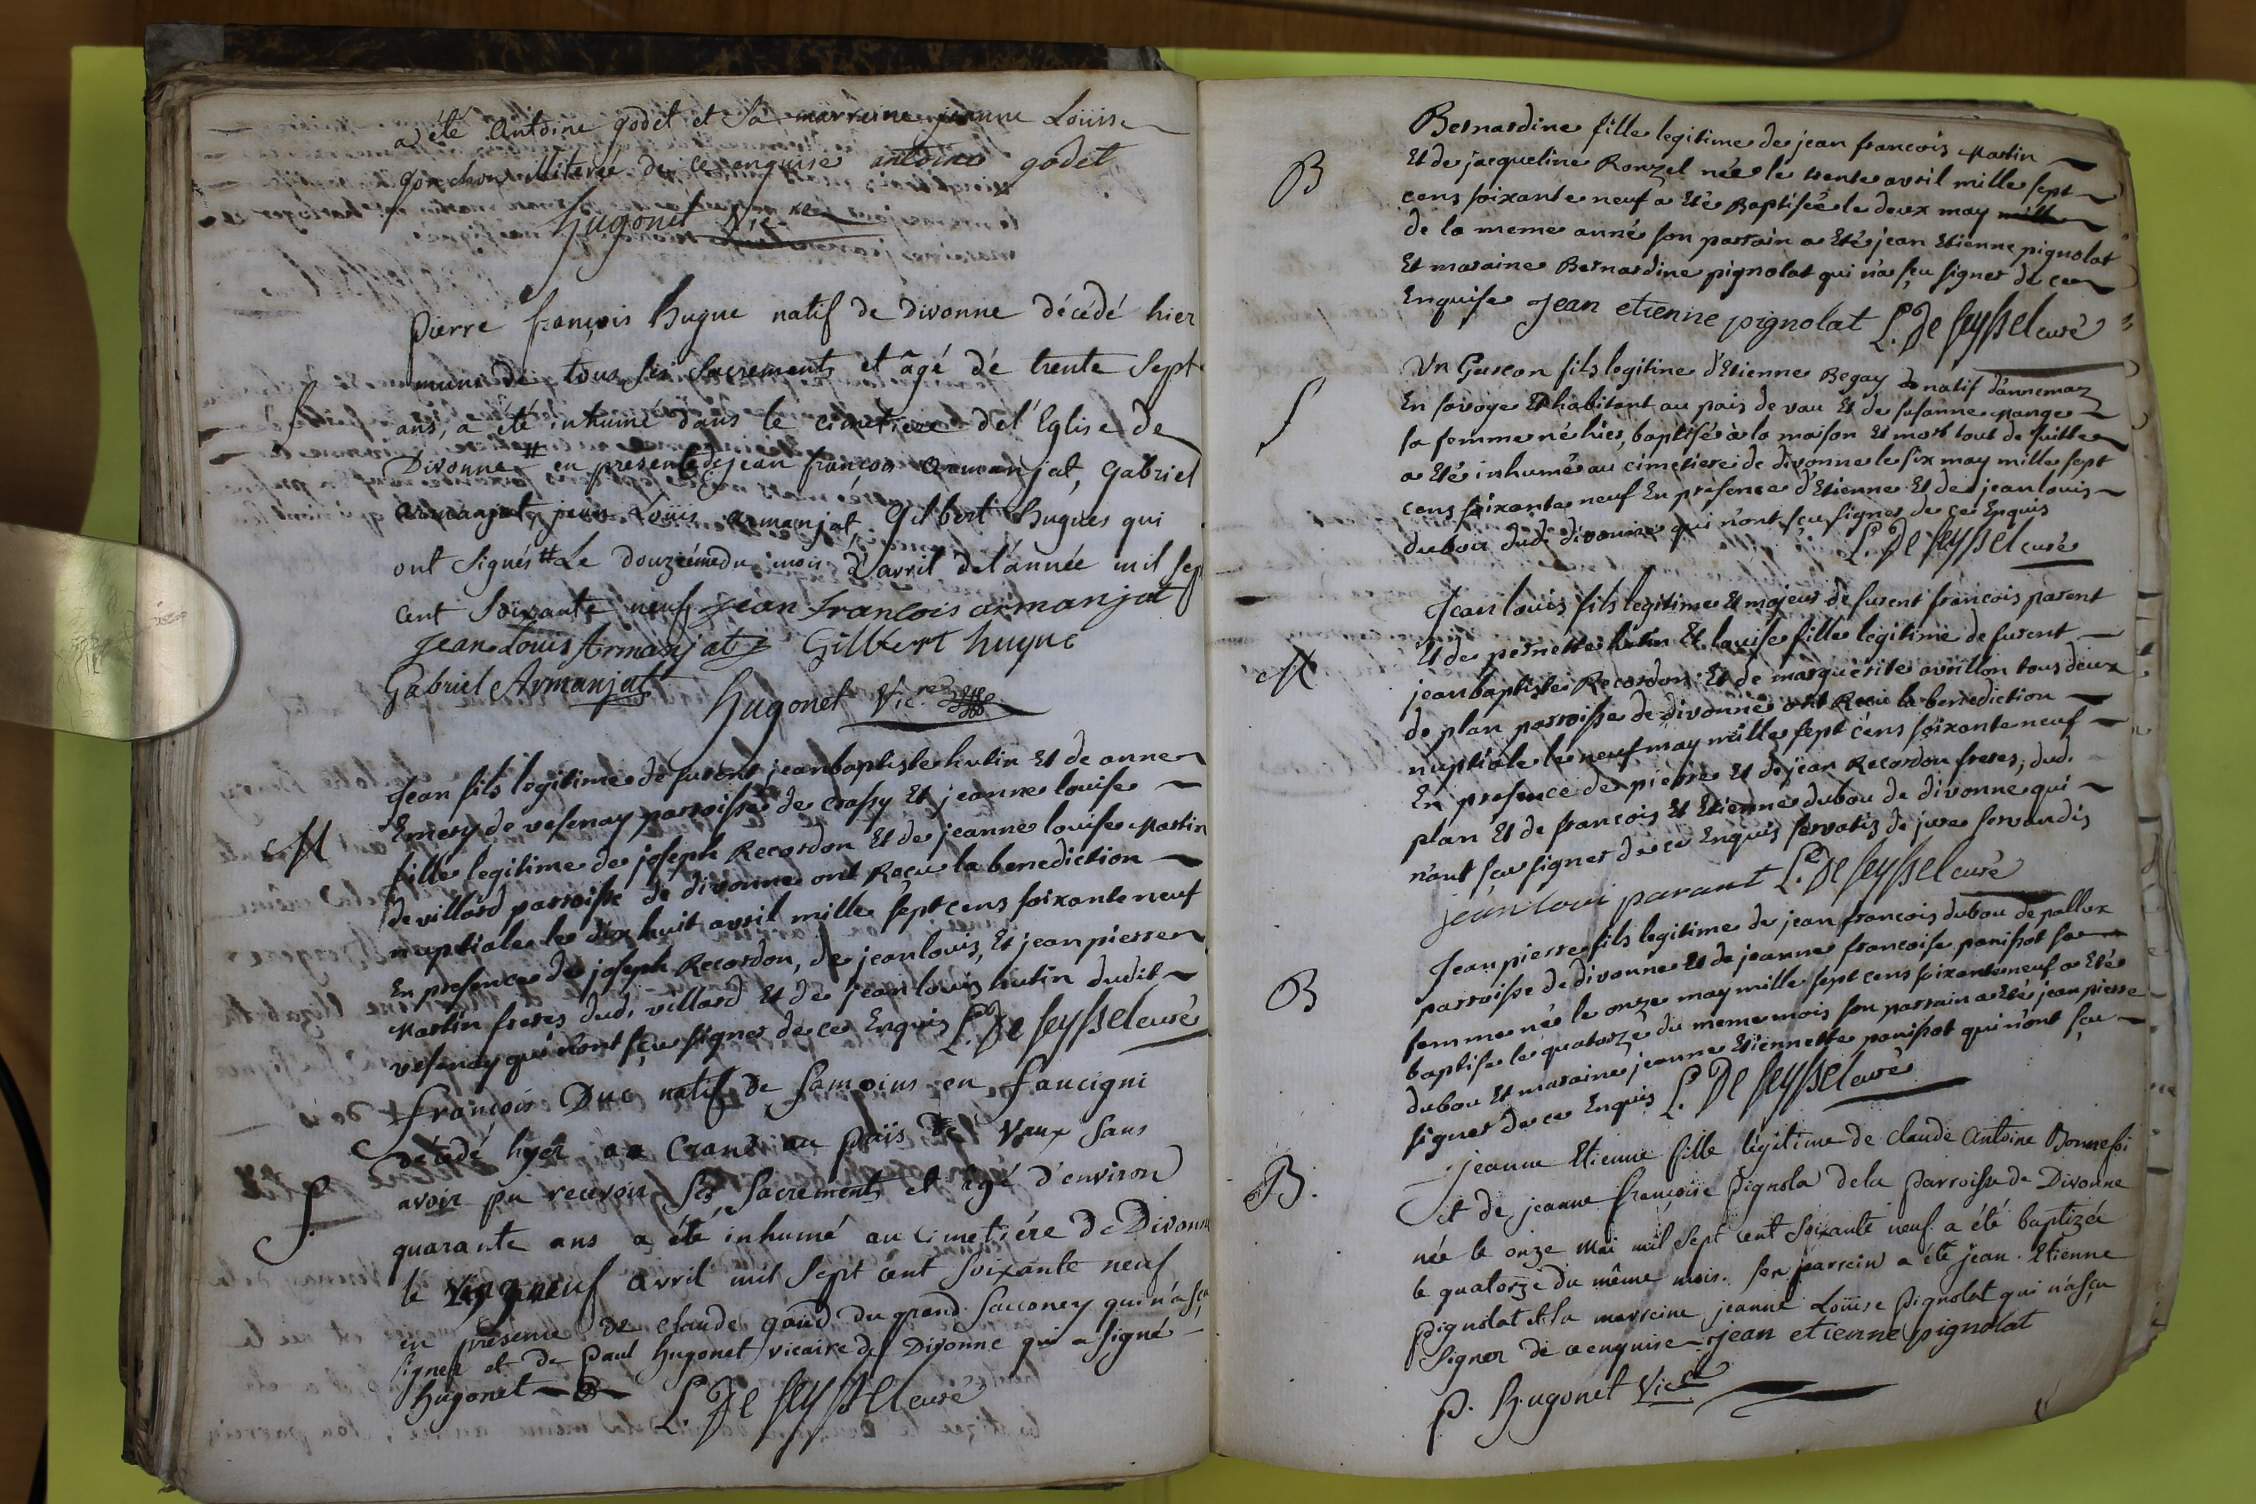 a été Antoine godet et Sa marreine jeanne Loüise
gonchon illiterée de ce enquise antoine godet
hugonet Vic.re
Pierre françois hugue natif de divonne décédé hier
muni de tous ses Sacrements et âgé de trente Sept
S
ans, a été inhumé dans le cimetiere de l'Eglise de
Divonne # en présence de jean françois armanjat, Gabriel
armanjat, jean Loüis armanjat, Gilbert hugues qui
ont Signés # Le douziéme du mois d'avril de l'année mil sep
cent Soixante neuf jean françois armanjat
jean Loüis Armanjat Gilbert hugue
Gabriel Armanjat hugonet Vic.re
jean fils legitime de furent jean baptiste hutin Et de anne
M
Emery de vesenay parroisse de crassy Et jeanne louise
fille legitime de joseph Recordon Et de jeanne louise Martin
de villard parroisse de divonne ont Reçu la benediction
nuptiale le dix huit avril mille sept cens soixante neuf
En presence de joseph Recordon, de jean louis, Et jean pierre
Martin freres dud. villard Et de jean louis hutin dudit
vesenay qui n'ont sçu signer de ce Enquis L. De Seyssel curé
françois Duc natif de Samoins en faucigni
décédé hyer a Crans au païs de Vaux Sans
avoir pu recevoir Ses Sacrements et agé d'environ
S.
quarante ans a été inhumé au cimetiére de Divonne
le Vingneuf avril mil Sept cent Soixante neuf
en présence de claude gaud du grand Sacconey qui n'a sçu
signer et de Paul hugonet vicaire de Divonne qui a signé
hugonet L. De Seyssel curé
Bernardine fille legitime de jean francois Martin
B
Et de jacqueline Ronzel née le trente avril mille sept
cens soixante neuf a Eté Baptisée le deux may mille
de la meme anné son parrain a Eté jean Etienne pignolat
Et maraine Bernardine pignolat qui n'a sçu signer de ce
Enquise jean etienne pignolat L. De Seyssel curé
Un Garcon fils legitime d'Etienne Begay natif d'annemaz
S
En savoye Et habitant au pais de vau Et de susanne mange
sa femme né hier, baptisé à la maison Et mort tout de suitte
a Eté inhumé au cimetiere de divonne le six may mille sept
cens soixante neuf En presence d'Etienne Et de jean louis
dubou dud. divonne qui n'ont sçu signer de ce Enquis
L. De Seyssel curé
Jean louis fils legitime Et majeur de furent francois parent
Et de pernette hutin Et louise fille legitime de furent
M
jean baptiste Recordon Et de marguerite avrillon tous deux
de plan parroisse de divonne ont Recu la benediction
nuptiale le neuf may mille sept cens soixante neuf
En presence de pierre Et de jean Recordon freres, dud.
plan Et de francois Et Etienne dubou de divonne qui
n'ont sçu signer de ce Enquis servatis de jure servandis
jean loui parant L. De Seyssel curé
Jean pierre fils legitime de jean francois dubou de pallux
B
parroisse de divonne Et de jeanne francoise panissot sa
femme né le onze may mille sept cens soixante neuf a Eté
baptise le quatorze du meme mois son parrain a Eté jean pierre
dubou Et maraine jeanne Etiennette panissot qui n'ont sçu
signer de ce Enquis L. De Seyssel curé
jeanne Etienne fille légitime de claude Antoine Bonnefoi
B.
et de jeanne françoise Pignola de la Parroisse de Divonne
née le onze Mai mil Sept cent Soixante neuf a été baptizée
le quatorze du même mois. Son parrein a été jean Etienne
Pignolat et la marreine jeanne Loüise Pignolat qui n'a sçu
signer de ce enquise jean etienne pignolat
P. Hugonet Vic.re